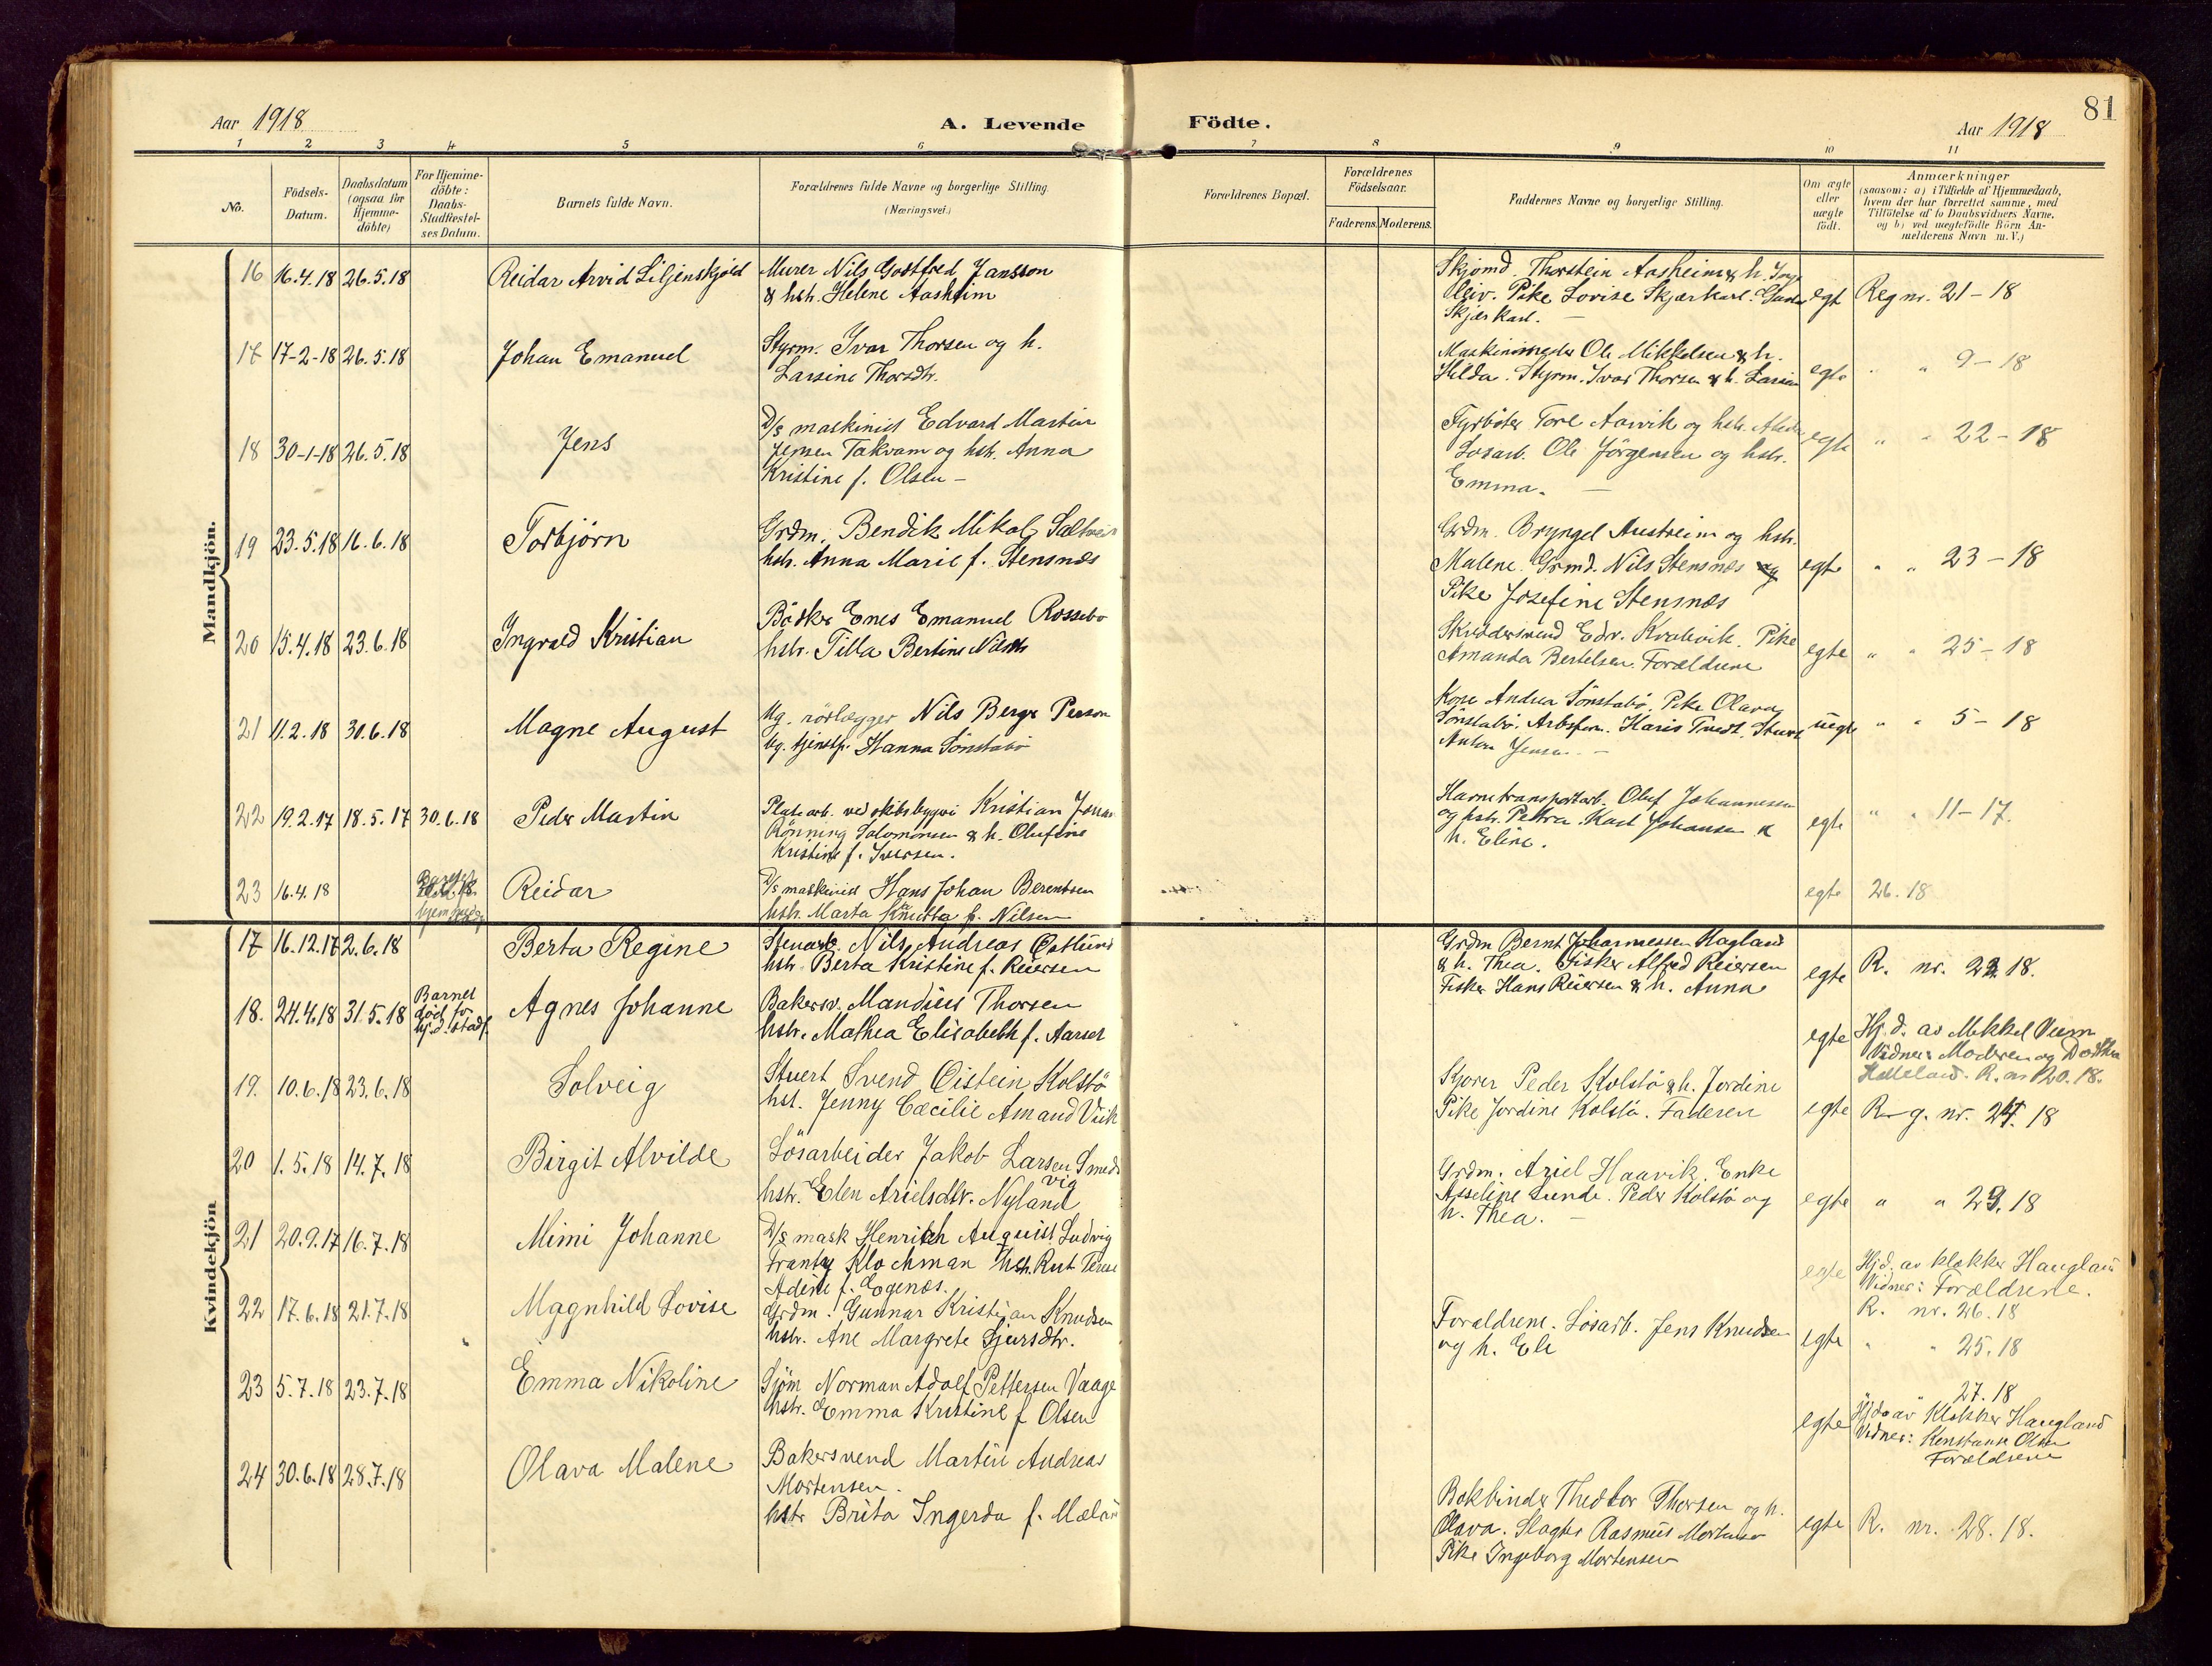 81
Aar 1918
A. Levende
Födte.
Aar 1918
1 2 3 4 5 6 7 8 9 10 11
No.
Födsels-
Datum.
Daabsdatum
(ogsaa for
Hjemme-
döbte)
For Hjemme-
döbte:
Daabs-
Stadfæstel-
ses Datum.
Barnets fulde Navn.
Forældrenes fulde Navne og borgerlige Stilling.
(Næringsvei.)
Forældrenes Bopæl.
Forældrenes
Födselsaar.
Faderens. Moderens.
Faddernes Navne og borgerlige Stilling.
Om ægte
eller
uægte
födt.
Anmærkninger
(saasom: a) i Tilfælde af Hjemmedaab,
hvem der har forrettet samme, med
Tilföielse af to Daabsvidners Navne.
og b) ved uegtefödte Börn An-
melderens Navn m. V.)
Mandkjön.
16 16.4.18 26.5.18 Reidar Arvid Liljenskjöld
Murer Nils Godtfred Jansson
& hst. Helene Aasheim
Skjomd. Thorstein Aasheim & h.
Pike Lovise Skjærkarl.
Skjærkarl.
egt Reg nr. 21-18
17 17-2-18 26.5.18 Johan Emanuel
Styrm. Ivar Thorsen og h.
Larsine Thorsdtr.
Ole Mikkelsen & h.
Helda. Styrm. Ivar Thorsen & h. Larsine
egte " " 9-18
18 30-1-18 26.5.18 Jens
D/s maskinist Edvard Martin
Jensen Takvam og hst. Anna
Kristine f. Olsen -
Fyrböter Tore Aarvik og hstr.
Losarb. Ole Jörgensen og hstr.
Emma. -
egte " " 22-18
19 23.5.18 16.6.18 Torbjörn
Grdm. Bendik Mikal
hstr. Anna Marie f. Stensnæs
Grdm. Bryngel Austreim og hstr.
Malene. Grmd. Nils Stensnæs og
Pike Josefine Stensnæs
egte " " 23-18
20 15.4.18 23.6.18 Ingvald Kristian
Bödker Enes Emanuel Rossebö
hstr. Tilla Bertine
Skreddersvend Edv. Kvalevik. Pike
Amanda Bertelsen. Forældrene
egte " " 25-18
21 11.2.18 30.6.18 Magne August
Ug. rörlægger Nils Berge Person
og. tjenestp. Hanna Sönstabö
Kone Andrea Sönstabö. Pike Olava
Sönstabö. Arbsform. Haris Tvedt.
Anton Jensen. -
uegte " " 5-18
22 19.2.17 18.5.17 30.6.18 Peder Martin
Platearb. ved skibsbyggeri Kristian
Rönning Salomonsen & h. Olufine
Kristine f. Iversen.
Havnetransportarb. Oluf Johannesen
og hstr. Petra. Karl Johansen &
h. Eline.
egte " " 11-17.
23 16.4.18 Reidar
D/s maskinist Hans Johan Berentsen
hstr. Marta f. Nilsen
egte 26.18
Kvindekjön
17 16.12.17 2.6.18 Berta Regine
Stenarb. Nils Andreas Östlund
hstr. Berta Kristine f. Reiersen
Grdm Bernt Johannessen Hagland
& h. Thea. Fisker Alfred Reiersen
Fisker Hans Reiersen & h. Anna
egte R. nr. 22. 18.
18. 24.4.18 31.5.18 Barnet
död för
hj.d. stadf.
Agnes Johanne
Bakersv. Mandius Thorsen
hstr. Mathea Elisabeth f. Aarset
egte Hj.d. av Mikkel
Vidner: Moderen og
R. nr 20.18.
19. 10.6.18 23.6.18 Solveig
Stuert Svend Öistein Kolstö
hst. Jenny Cæcilie Amand Viik
Kjorer Peder Kolstö & h. Jordine
Pike Jordine Kolstö. Faderen
egte R-g. nr. 24. 18
20 1.5.18 14.7.18 Birgit Alvilde
Lösarbeider Jakob Larsen Smeds
vig
hstr. Elen Arielsdtr. Nyland
Grdm. Ariel Haavik. Enke
Asseline Lunde. Peder Kolstö og
h. Thea. -
egte " " 29.18
21 20.9.17 16.7.18 Mimi Johanne
D/s mask Henrich August Ludvig
Frantz Klochman hst. Rut
Adene f. Egenæs.
egte Hj.d. av klokker Haugland
Vidner: Forældrene.
R. nr. 26.18
22 17.6.18 21.7.18 Magnhild Lovise
Grdm. Gunnar Kristian Knudsen
hstr. Ane Margrete Sjursdtr.
Forældrene. Losarb. Jens Knudsen
og h. Eli
egte " " 25.18
23 5.7.18 23.7.18 Emma Nikoline
Sjöm Norman Adolf Pettersen Vaage
hstr. Emma Kristine f Olsen
27.18
egte Hj.d. av Klokker Haugland
Vidner: Konstanse Olsen
Forældrene
24 30.6.18 28.7.18 Olava Malene
Bakersvend Martin Andreas
Mortensen.
hstr Brita Ingerda f.
Bokbinder Thedtor Thorsen og h.
Olava. Slagter Rasmus Mortensen
Pike Ingeborg Mortensen
egte R. nr. 28. 18.